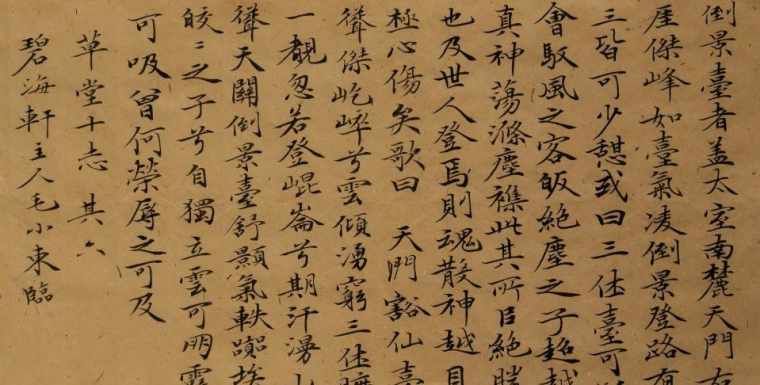 倒景臺者盖太室南麓天門右
厓傑峰如臺氣凌倒景登路有
三皆可少憩或曰三休臺可
會馭風之客皈絶塵之子超越
真神蕩滌塵襟此其所㠯絶勝
也及世人登焉則魂散神越目
極心傷矣歌曰 天門豁仙臺
聳傑屹崪兮雲傾湧窮三休曠
一覩忽若登崐崙兮期汗漫
聳天關倒景臺舒顥氣軼埃
皎〻之子兮自獨立雲可朋霞
可吸曾何榮辱之可及
草堂十志 其六
碧海軒主人毛小東臨